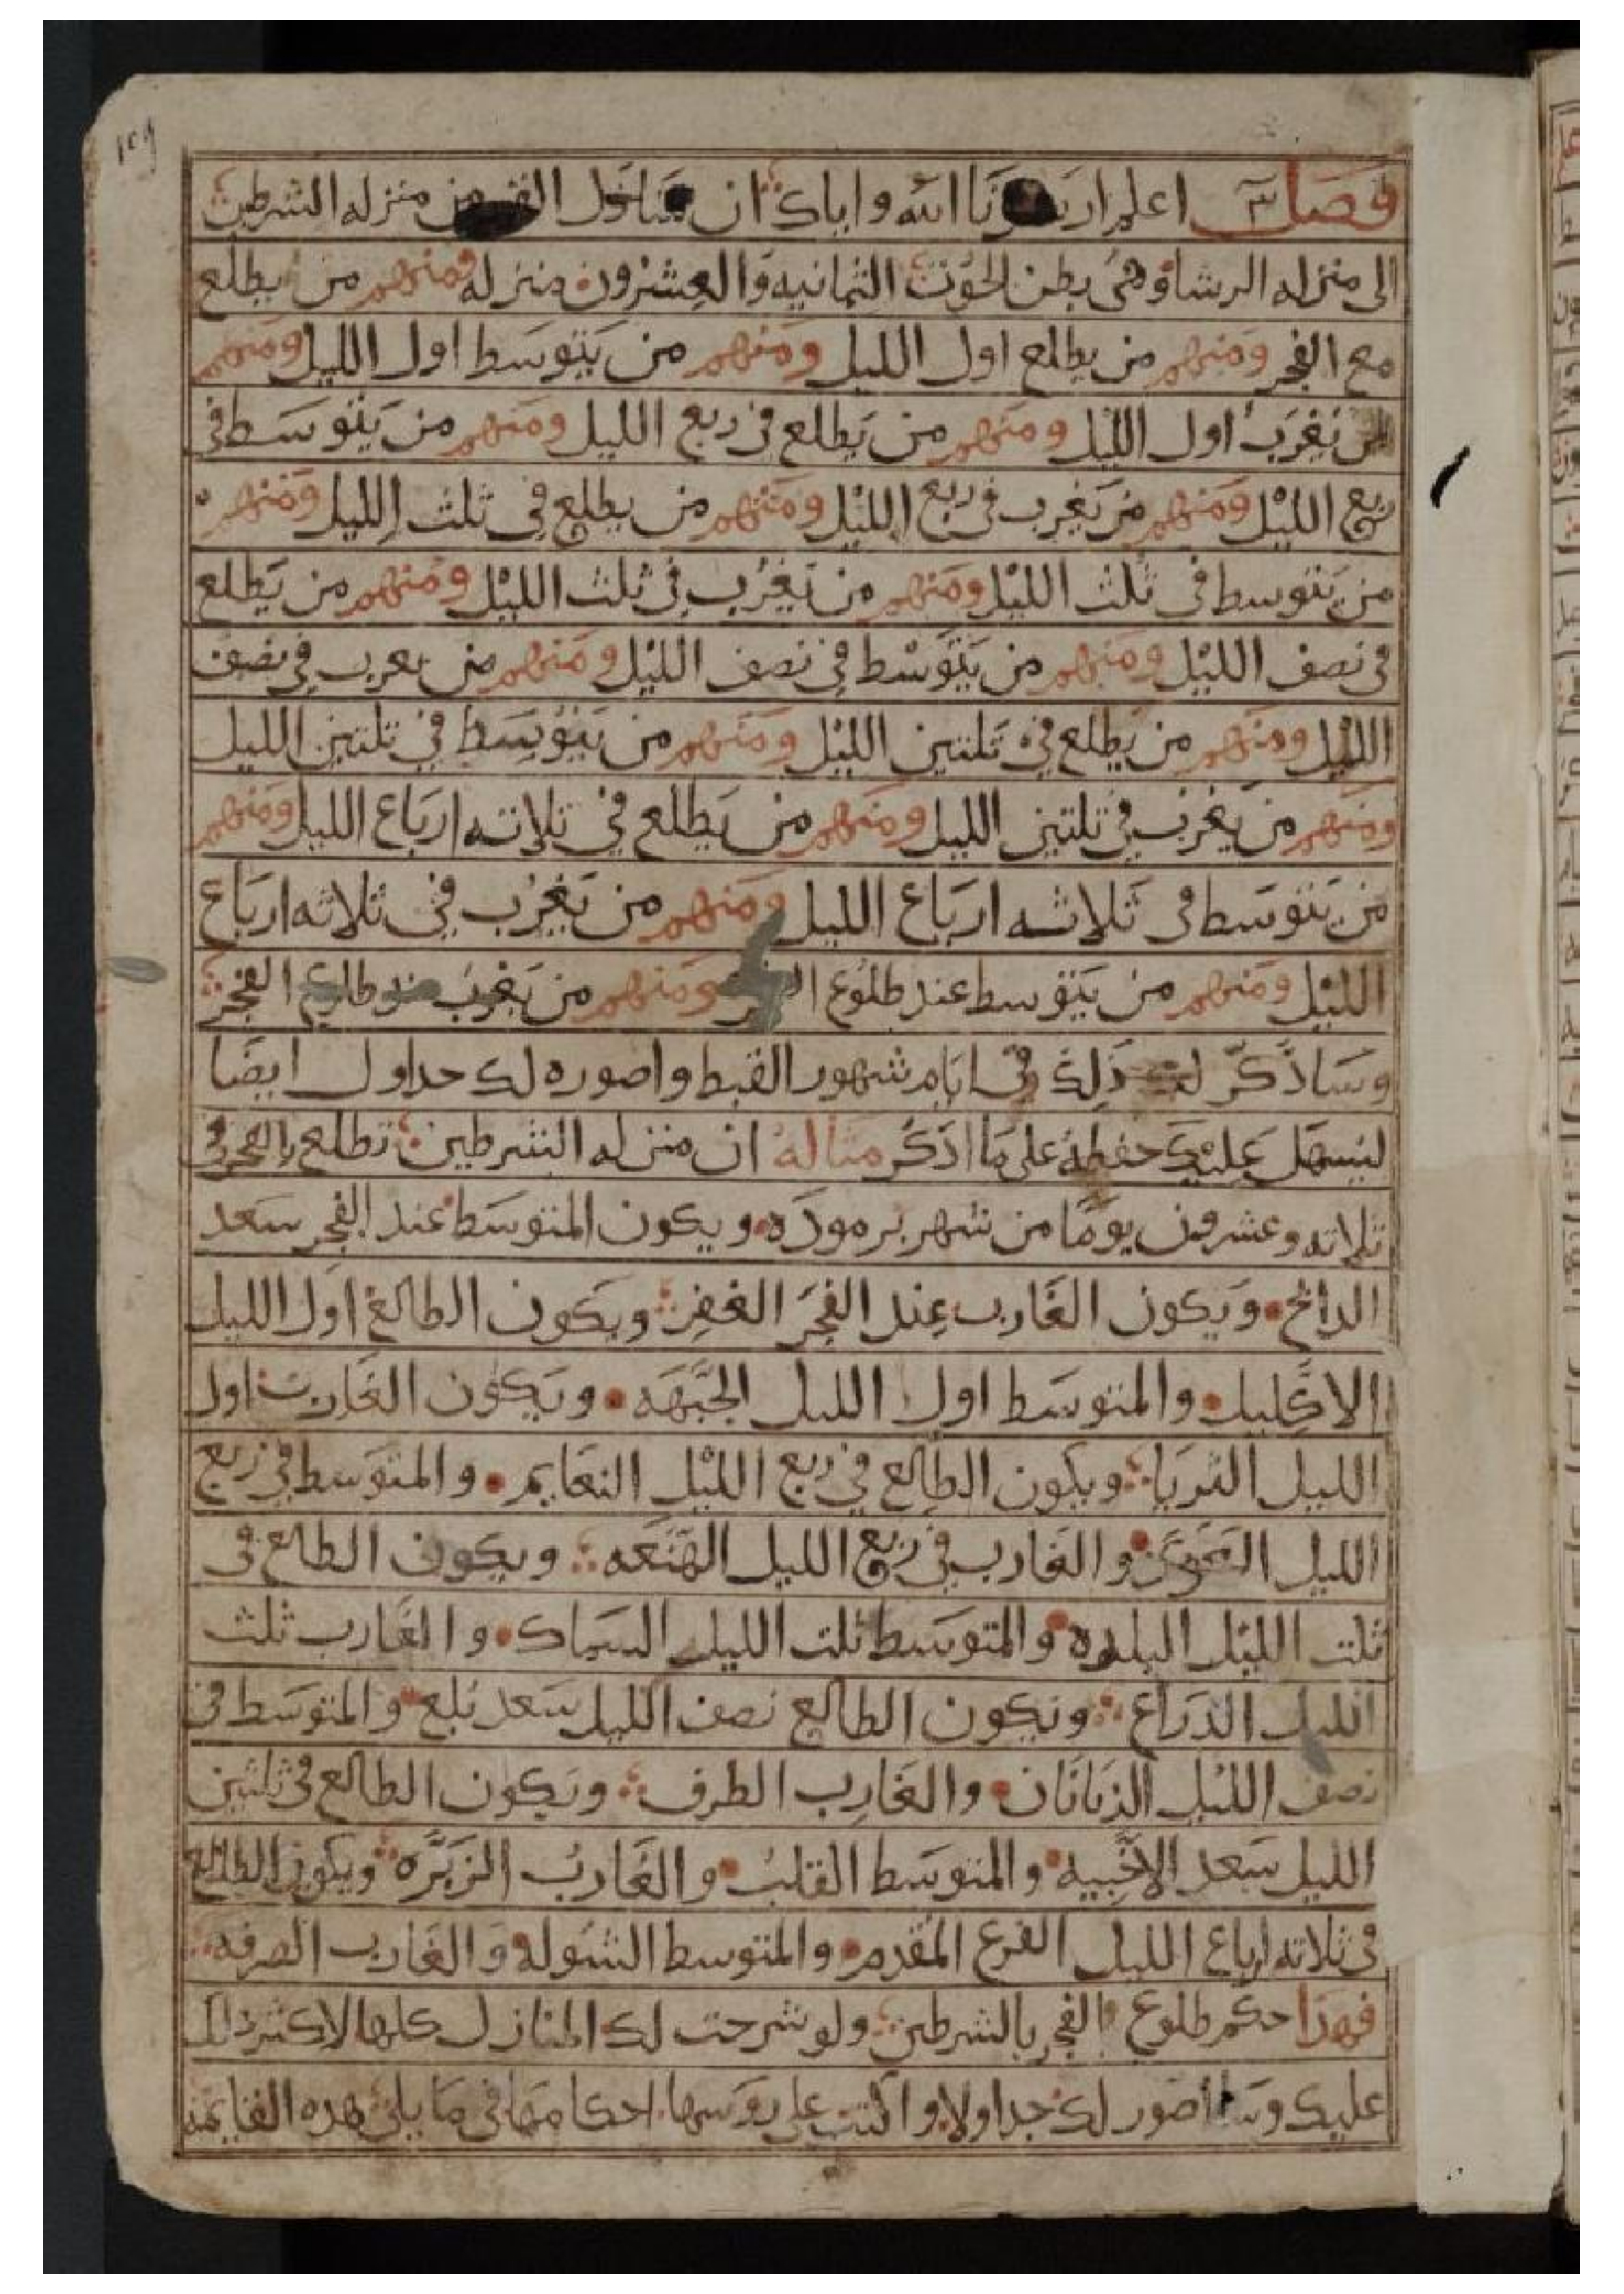 ١٥٩
فصل اعلم ارشدنا الله واياك ان القمر من منزله الشرطين
الى منزله الرشا وهى بطن الحوت الثمانيه والعشرون منزله ومنهم من يطلع
مع الفجر ومنهم من يطلع اول الليل ومنهم من يتوسط اول الليل ومنهم
من يغرب اول الليل ومنهم من يطلع في ربع الليل ومنهم من يتوسط في
ربع الليل ومنهم من يغرب في ربع الليل ومنهم من يطلع في ثلث الليل ومنهم
من يتوسط في ثلث الليل ومنهم من يغرب في ثلث الليل ومنهم من يطلع
في نصف الليل ومنهم من يتوسط في نصف الليل ومنهم من يغرب في نصف
الليل ومنهم من يطلع في ثلتين الليل ومنهم من يتوسط في تلتين الليل
ومنهم من يغرب في ثلتين الليل ومنهم من يطلع في ثلاثه ارباع الليل ومنهم
من يتوسط في ثلاثه ارباع الليل ومنهم من يغرب في ثلاثه ارباع
الليل ومنهم من يتوسط عند طلوع الفجر ومنهم من يغرب عند طلوع الفجر
وساذكر لك ذلك في ايام شهور القبط واصوره لك جداول ايضا
ليسهل عليك حفظه على ما اذكر مثاله ان منزله الشرطين تطلع بالفجر في
ثلاثه وعشرون يوما من شهر برموده ويكون المتوسط عند الفجر سعد
الذابح ويكون الغارب عند الفجر الغفر ويكون الطالع اول الليل
الاكليل والمتوسط اول الليل الجبهه ويكون الغارب اول
الليل الثريا ويكون الطالع في ربع الليل النعايم والمتوسط في ربع
الليل والغارب في ربع الليل الهنعه ويكون الطالع في
ثلث الليل البلده والمتوسط ثلث الليل السماك والغارب ثلث
الليل الذراع ويكون الطالع نصف الليل سعد بلع والمتوسط في
نصف الليل الزبانان والغارب الطرف ويكون الطالع في ثلثين
الليل سعد الاخبيه والمتوسط القلب والغارب الزبره ويكون الطالع
في ثلاثه ارباع الليل الفرع المقدم والمتوسط الشوله والغارب الصرفه
فهذا حكم طلوع الفجر بالشرطين ولو شرحت لك المنازل كلها لاكثر ذلك
عليك وسااصور لك جداولا واكتب على روسها احكامها في ما يلي هده القايمه